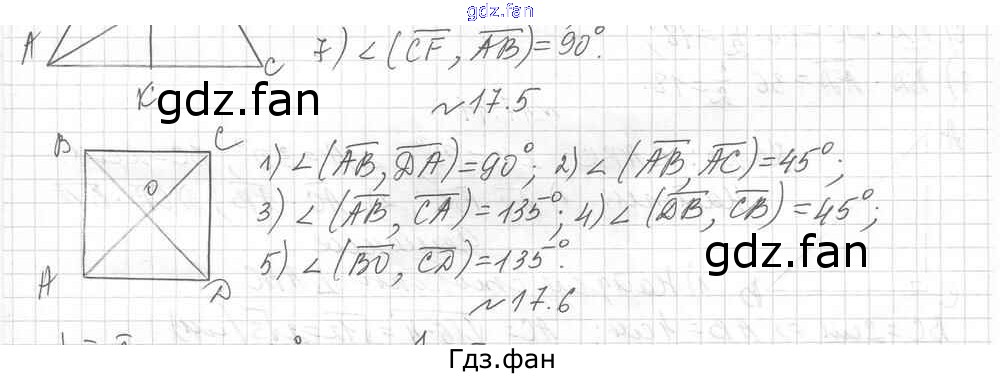 gdz.fan
A K C 7) ∠(CF̅, AB̅) = 90°.
gdz.fan
~17.5
B C O A D
1) ∠(AB̅, DA̅) = 90°; 2) ∠(AB̅, AC̅) = 45°;
3) ∠(AB̅, CA̅) = 135°; 4) ∠(DB̅, CB̅) = 45°;
5) ∠(BO̅, CD̅) = 135°.
gdz.fan
~17.6
Гдз.фан